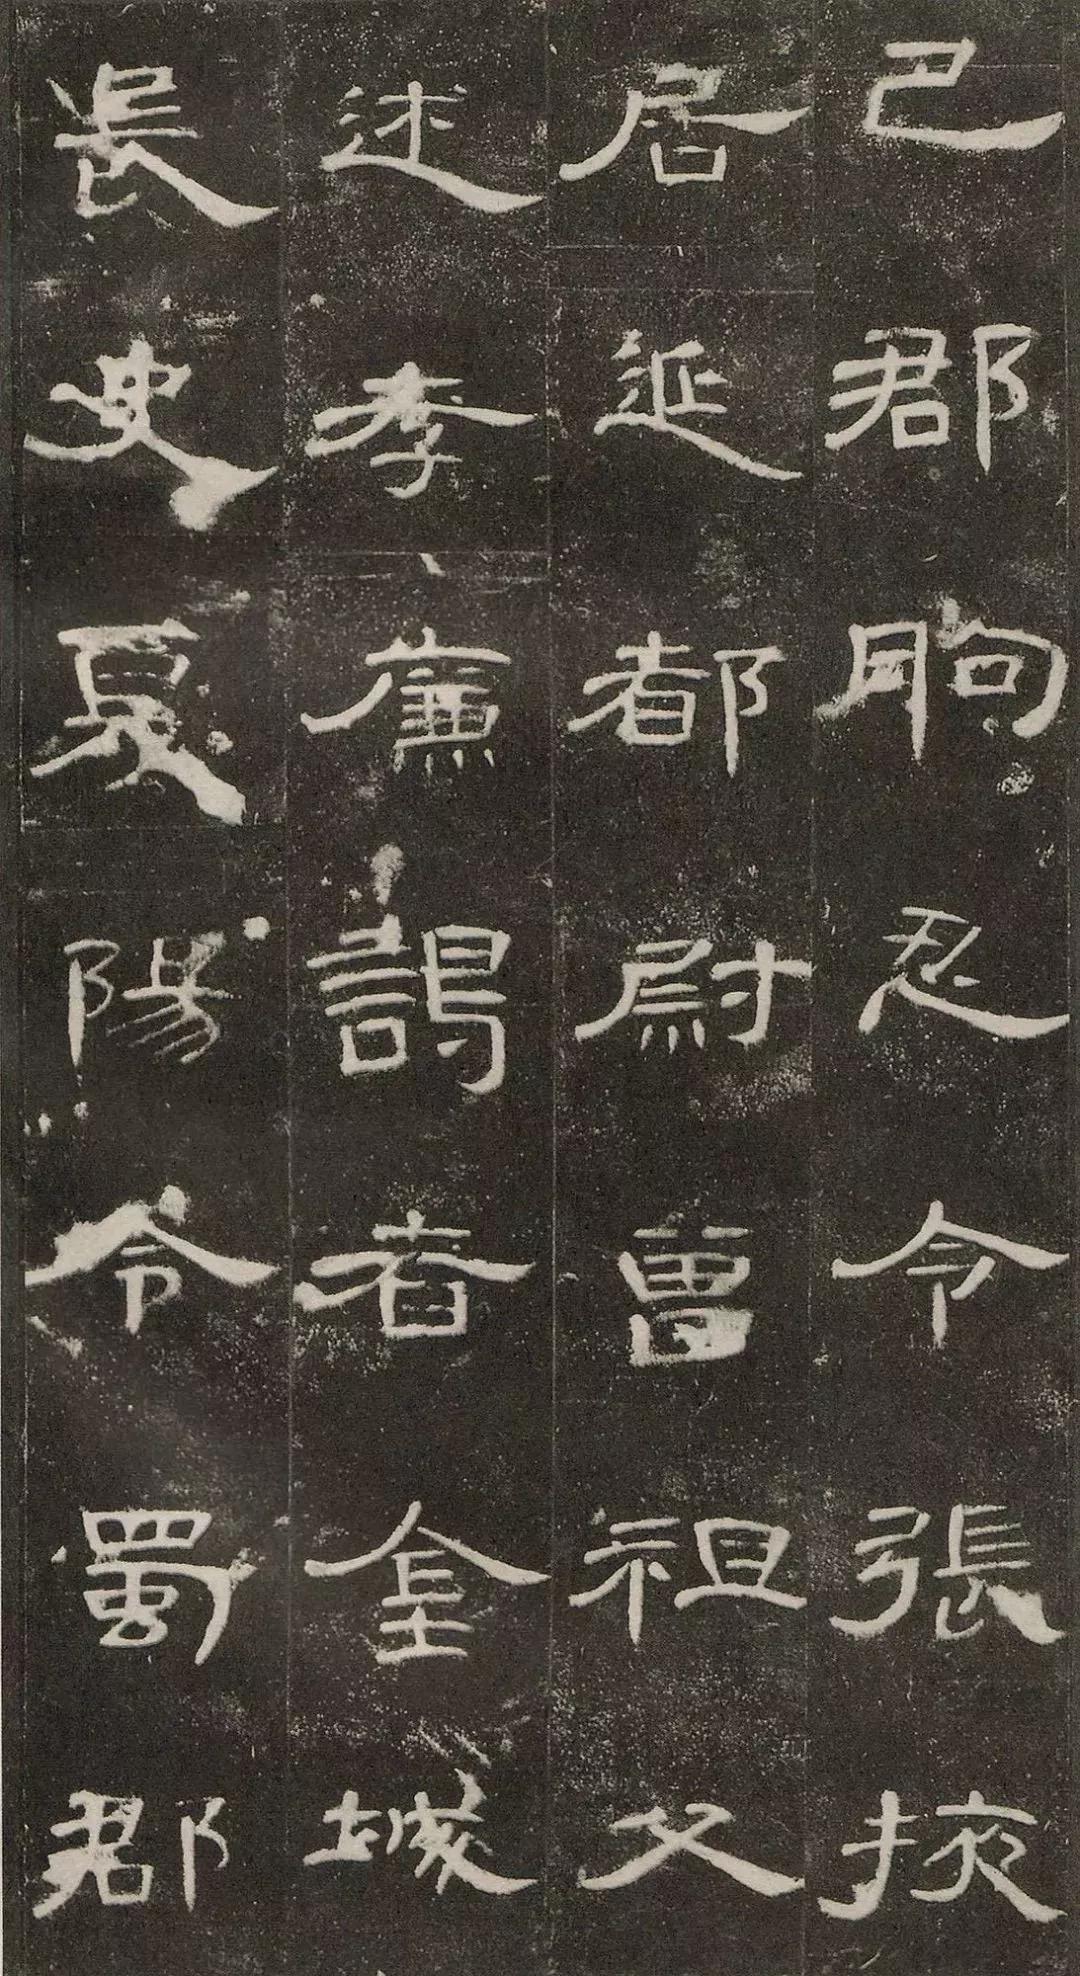 巴郡朐忍令張掖
居延都尉曾祖父
述孝廉謁者金城
長史夏陽令蜀郡